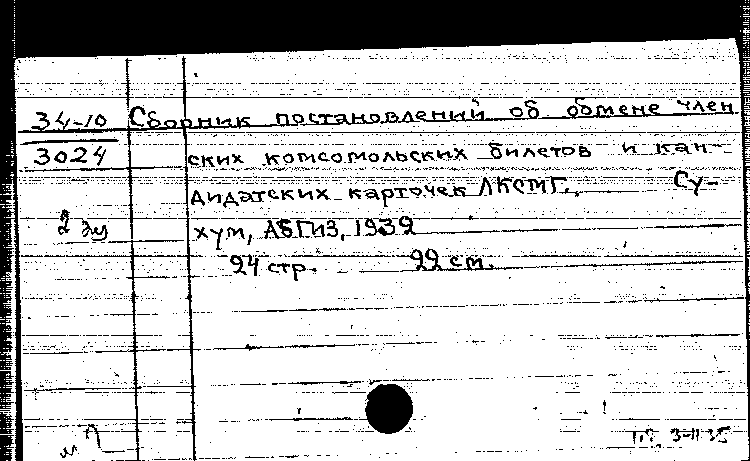 34-10 Сборник постановлений об обмене член
3024 ских комсомольских билетов и кан-
дидатских карточек ЛКСМГ. Су-
2 экз хум, АБГИЗ, 1932
24 стр. 22 см.
3-II 35